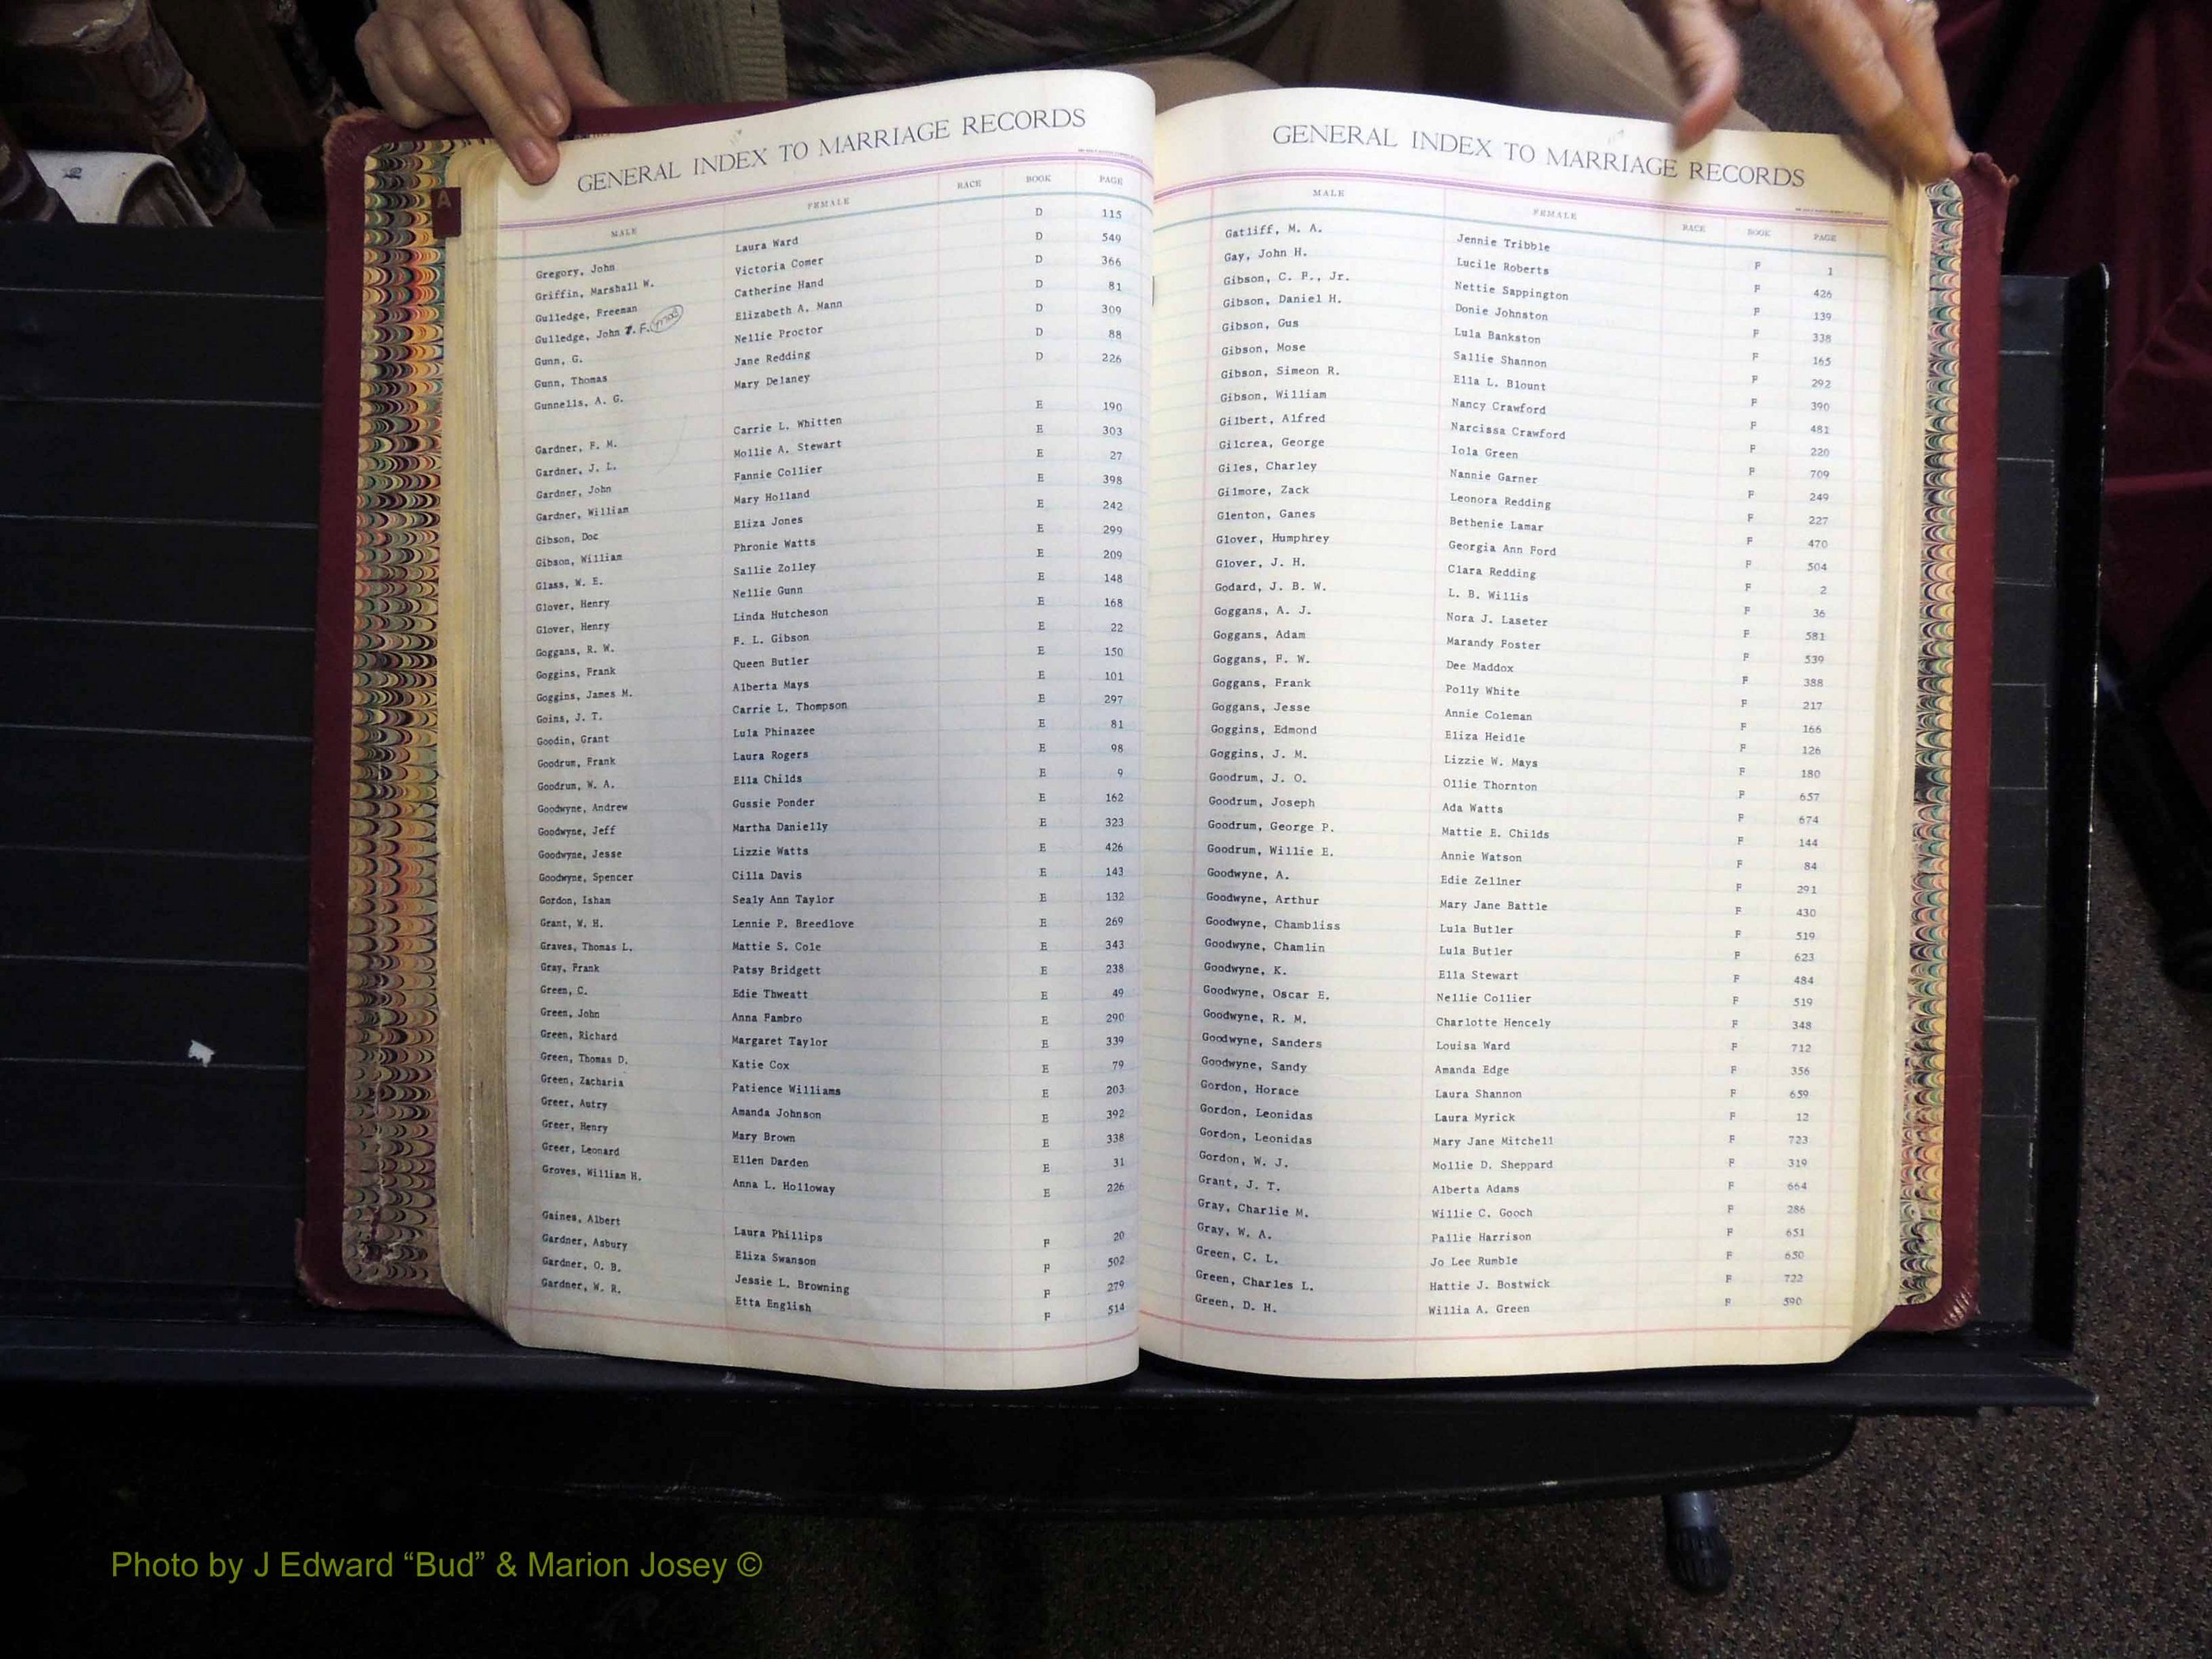 GENERAL INDEX TO MARRIAGE RECORDS
MALE FEMALE RACE BOOK PAGE
Gregory, John Laura Ward D 115
Griffin, Marshall W. Victoria Comer D 549
Gulledge, Freeman Catherine Hand D 366
Gulledge, John T. F. Elizabeth A. Mann D 81
Gunn, G. Nellie Proctor D 309
Gunn, Thomas Jane Redding D 88
Gunnells, A. G. Mary Delaney D 226
Gardner, F. M. Carrie L. Whitten E 190
Gardner, J. L. Mollie A. Stewart E 303
Gardner, John Fannie Collier E 27
Gardner, William Mary Holland E 398
Gibson, Doc Eliza Jones E 242
Gibson, William Phronie Watts E 299
Glass, W. E. Sallie Zolley E 209
Glover, Henry Nellie Gunn E 148
Glover, Henry Linda Hutcheson E 168
Goggans, R. W. F. L. Gibson E 22
Goggins, Frank Queen Butler E 150
Goggins, James M. Alberta Mays E 101
Goins, J. T. Carrie L. Thompson E 297
Goodin, Grant Lula Phinazee E 81
Goodrum, Frank Laura Rogers E 98
Goodrum, W. A. Ella Childs E 9
Goodwyne, Andrew Gussie Ponder E 162
Goodwyne, Jeff Martha Danielly E 323
Goodwyne, Jesse Lizzie Watts E 426
Goodwyne, Spencer Cilla Davis E 143
Gordon, Isham Sealy Ann Taylor E 132
Grant, W. H. Lennie P. Breedlove E 269
Graves, Thomas L. Mattie S. Cole E 343
Gray, Frank Patsy Bridgett E 238
Green, C. Edie Thweatt E 49
Green, John Anna Fambro E 290
Green, Richard Margaret Taylor E 339
Green, Thomas D. Katie Cox E 79
Green, Zacharia Patience Williams E 203
Greer, Autry Amanda Johnson E 392
Greer, Henry Mary Brown E 338
Greer, Leonard Ellen Darden E 31
Groves, William H. Anna L. Holloway E 226
Gaines, Albert Laura Phillips F 20
Gardner, Asbury Eliza Swanson F 502
Gardner, O. B. Jessie L. Browning F 279
Gardner, W. R. Etta English F 514
GENERAL INDEX TO MARRIAGE RECORDS
MALE FEMALE RACE BOOK PAGE
Gatliff, M. A. Jennie Tribble F 1
Gay, John H. Lucile Roberts F 426
Gibson, C. F., Jr. Nettie Sappington F 139
Gibson, Daniel H. Donie Johnston F 338
Gibson, Gus Lula Bankston F 165
Gibson, Mose Sallie Shannon F 292
Gibson, Simeon R. Ella L. Blount F 390
Gibson, William Nancy Crawford F 481
Gilbert, Alfred Narcissa Crawford F 220
Gilcrea, George Iola Green F 709
Giles, Charley Nannie Garner F 249
Gilmore, Zack Leonora Redding F 227
Glenton, Ganes Bethenie Lamar F 470
Glover, Humphrey Georgia Ann Ford F 504
Glover, J. H. Clara Redding F 2
Godard, J. B. W. L. B. Willis F 36
Goggans, A. J. Nora J. Laseter F 581
Goggans, Adam Marandy Foster F 539
Goggans, F. W. Dee Maddox F 388
Goggans, Frank Polly White F 217
Goggans, Jesse Annie Coleman F 166
Goggins, Edmond Eliza Heidle F 126
Goggins, J. M. Lizzie W. Mays F 180
Goodrum, J. O. Ollie Thornton F 657
Goodrum, Joseph Ada Watts F 674
Goodrum, George P. Mattie E. Childs F 144
Goodrum, Willie E. Annie Watson F 84
Goodwyne, A. Edie Zellner F 291
Goodwyne, Arthur Mary Jane Battle F 430
Goodwyne, Chambliss Lula Butler F 519
Goodwyne, Chamlin Lula Butler F 623
Goodwyne, K. Ella Stewart F 484
Goodwyne, Oscar E. Nellie Collier F 519
Goodwyne, R. M. Charlotte Hencely F 348
Goodwyne, Sanders Louisa Ward F 712
Goodwyne, Sandy Amanda Edge F 356
Gordon, Horace Laura Shannon F 659
Gordon, Leonidas Laura Myrick F 12
Gordon, Leonidas Mary Jane Mitchell F 723
Gordon, W. J. Mollie D. Sheppard F 319
Grant, J. T. Alberta Adams F 664
Gray, Charlie M. Willie C. Gooch F 286
Gray, W. A. Pallie Harrison F 651
Green, C. L. Jo Lee Rumble F 650
Green, Charles L. Hattie J. Bostwick F 722
Green, D. H. Willia A. Green F 590
A
Photo by J Edward “Bud” & Marion Josey ©